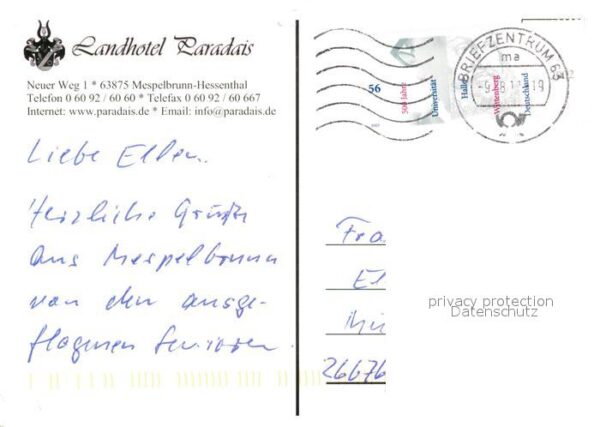 Landhotel Paradais
Neuer Weg 1 * 63875 Mespelbrunn-Hessenthal
Telefon 0 60 92 / 60 60 * Telefax 0 60 92 / 60 667
Internet: www.paradais.de * Email: info@paradais.de
Liebe Ellen.
Herzliche Grüße
aus Mespelbrunn
von den ausge-
flogenen Senioren.
56
500 Jahre
Universität
Halle
Wittenberg
Deutschland
BRIEFZENTRUM 63
ma
Fra
El
26676
privacy protection
Datenschutz